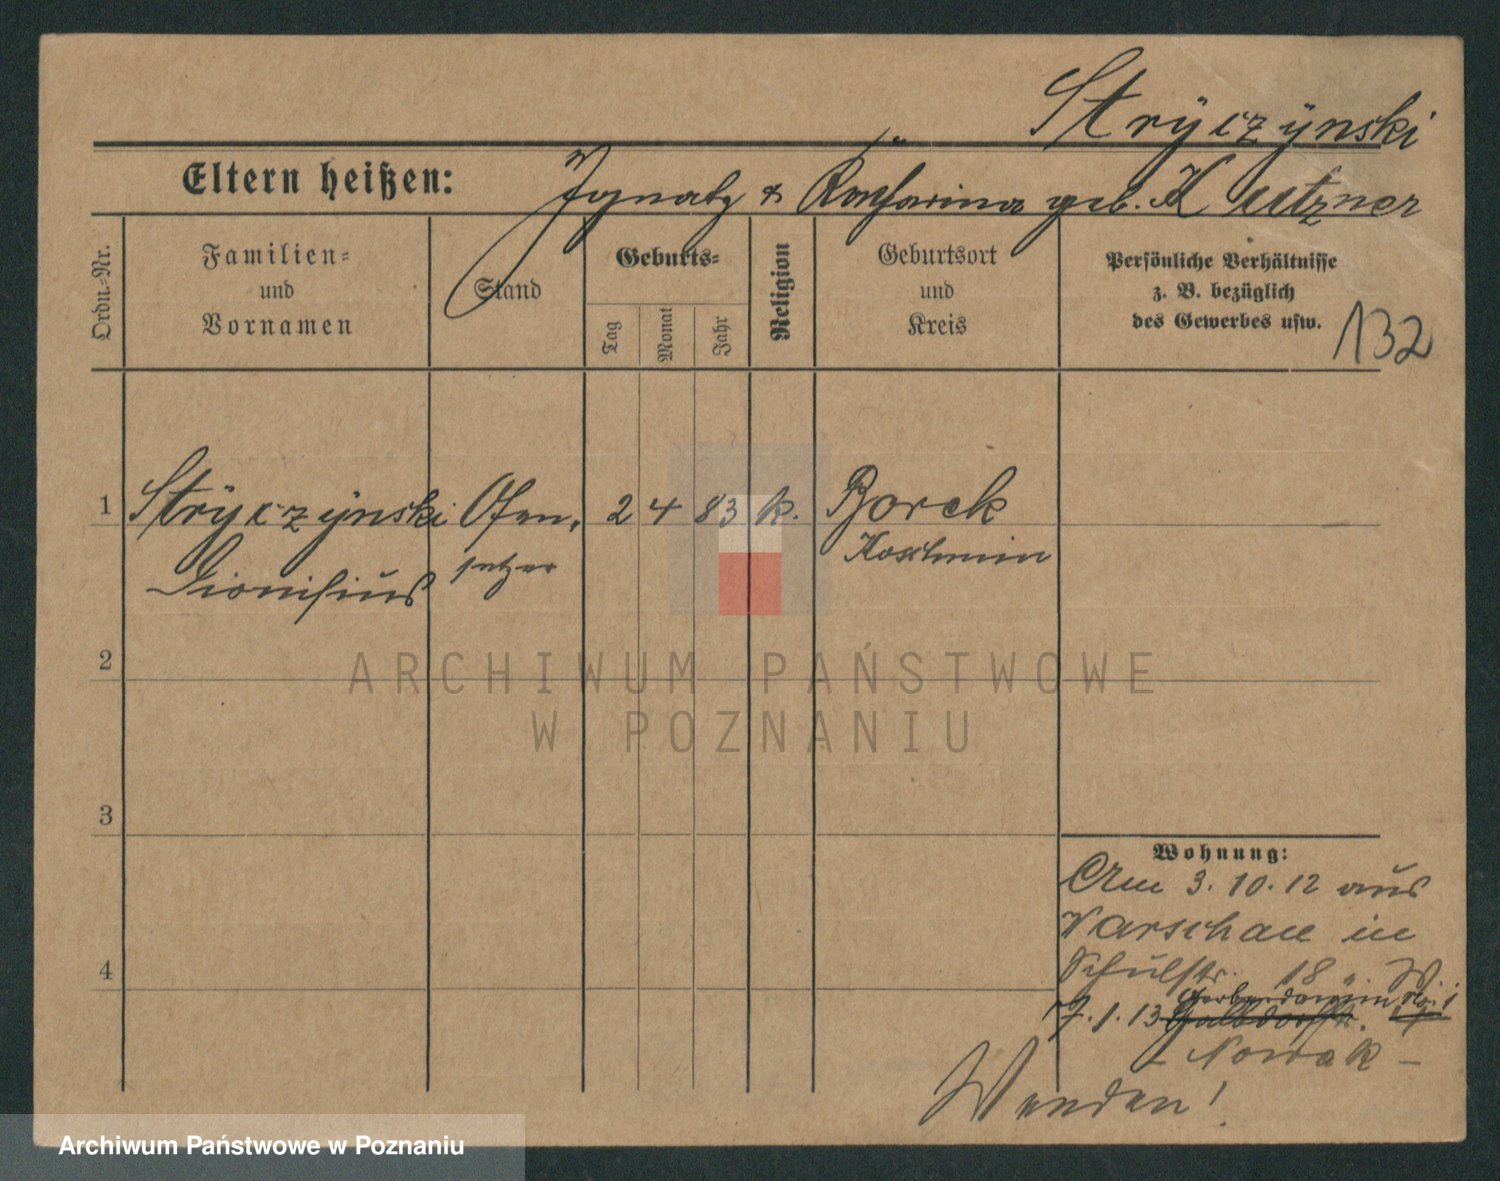 Stryczynski
Eltern heißen: Ignatz & Katharina geb. Kutzner
Ordn.-Nr.
Familien-
und
Vornamen
Stand
Geburts-
Tag
Monat
Jahr
Religion
Geburtsort
und
Kreis
Persönliche Verhältnisse
z. B. bezüglich
des Gewerbes usw.
132
1 Stryczynski Ofen- 2 4 83 k. Borek
Dionisius setzer Koschmin
2
ARCHIWUM PAŃSTWOWE
W POZNANIU
3
4
Wohnung:
Am 3.10.12 aus
Warschau in
Schulstr. 18
7.1.13
- Nowak -
Wenden!
Archiwum Państwowe w Poznaniu